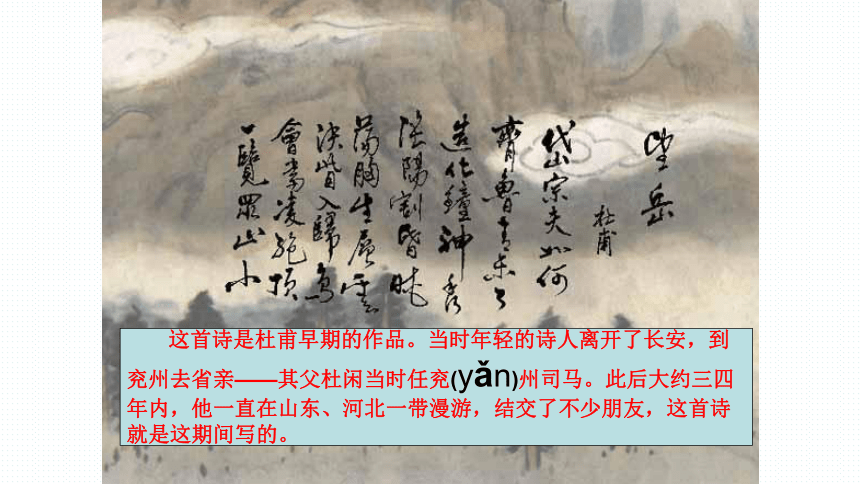 望岳
杜甫
岱宗夫如何
齊魯青未了
造化鐘神秀
陰陽割昏曉
蕩胸生層雲
決眥入歸鳥
會當凌絕頂
一覽眾山小
这首诗是杜甫早期的作品。当时年轻的诗人离开了长安，到
兖州去省亲——其父杜闲当时任兖(yǎn)州司马。此后大约三四
年内，他一直在山东、河北一带漫游，结交了不少朋友，这首诗
就是这期间写的。